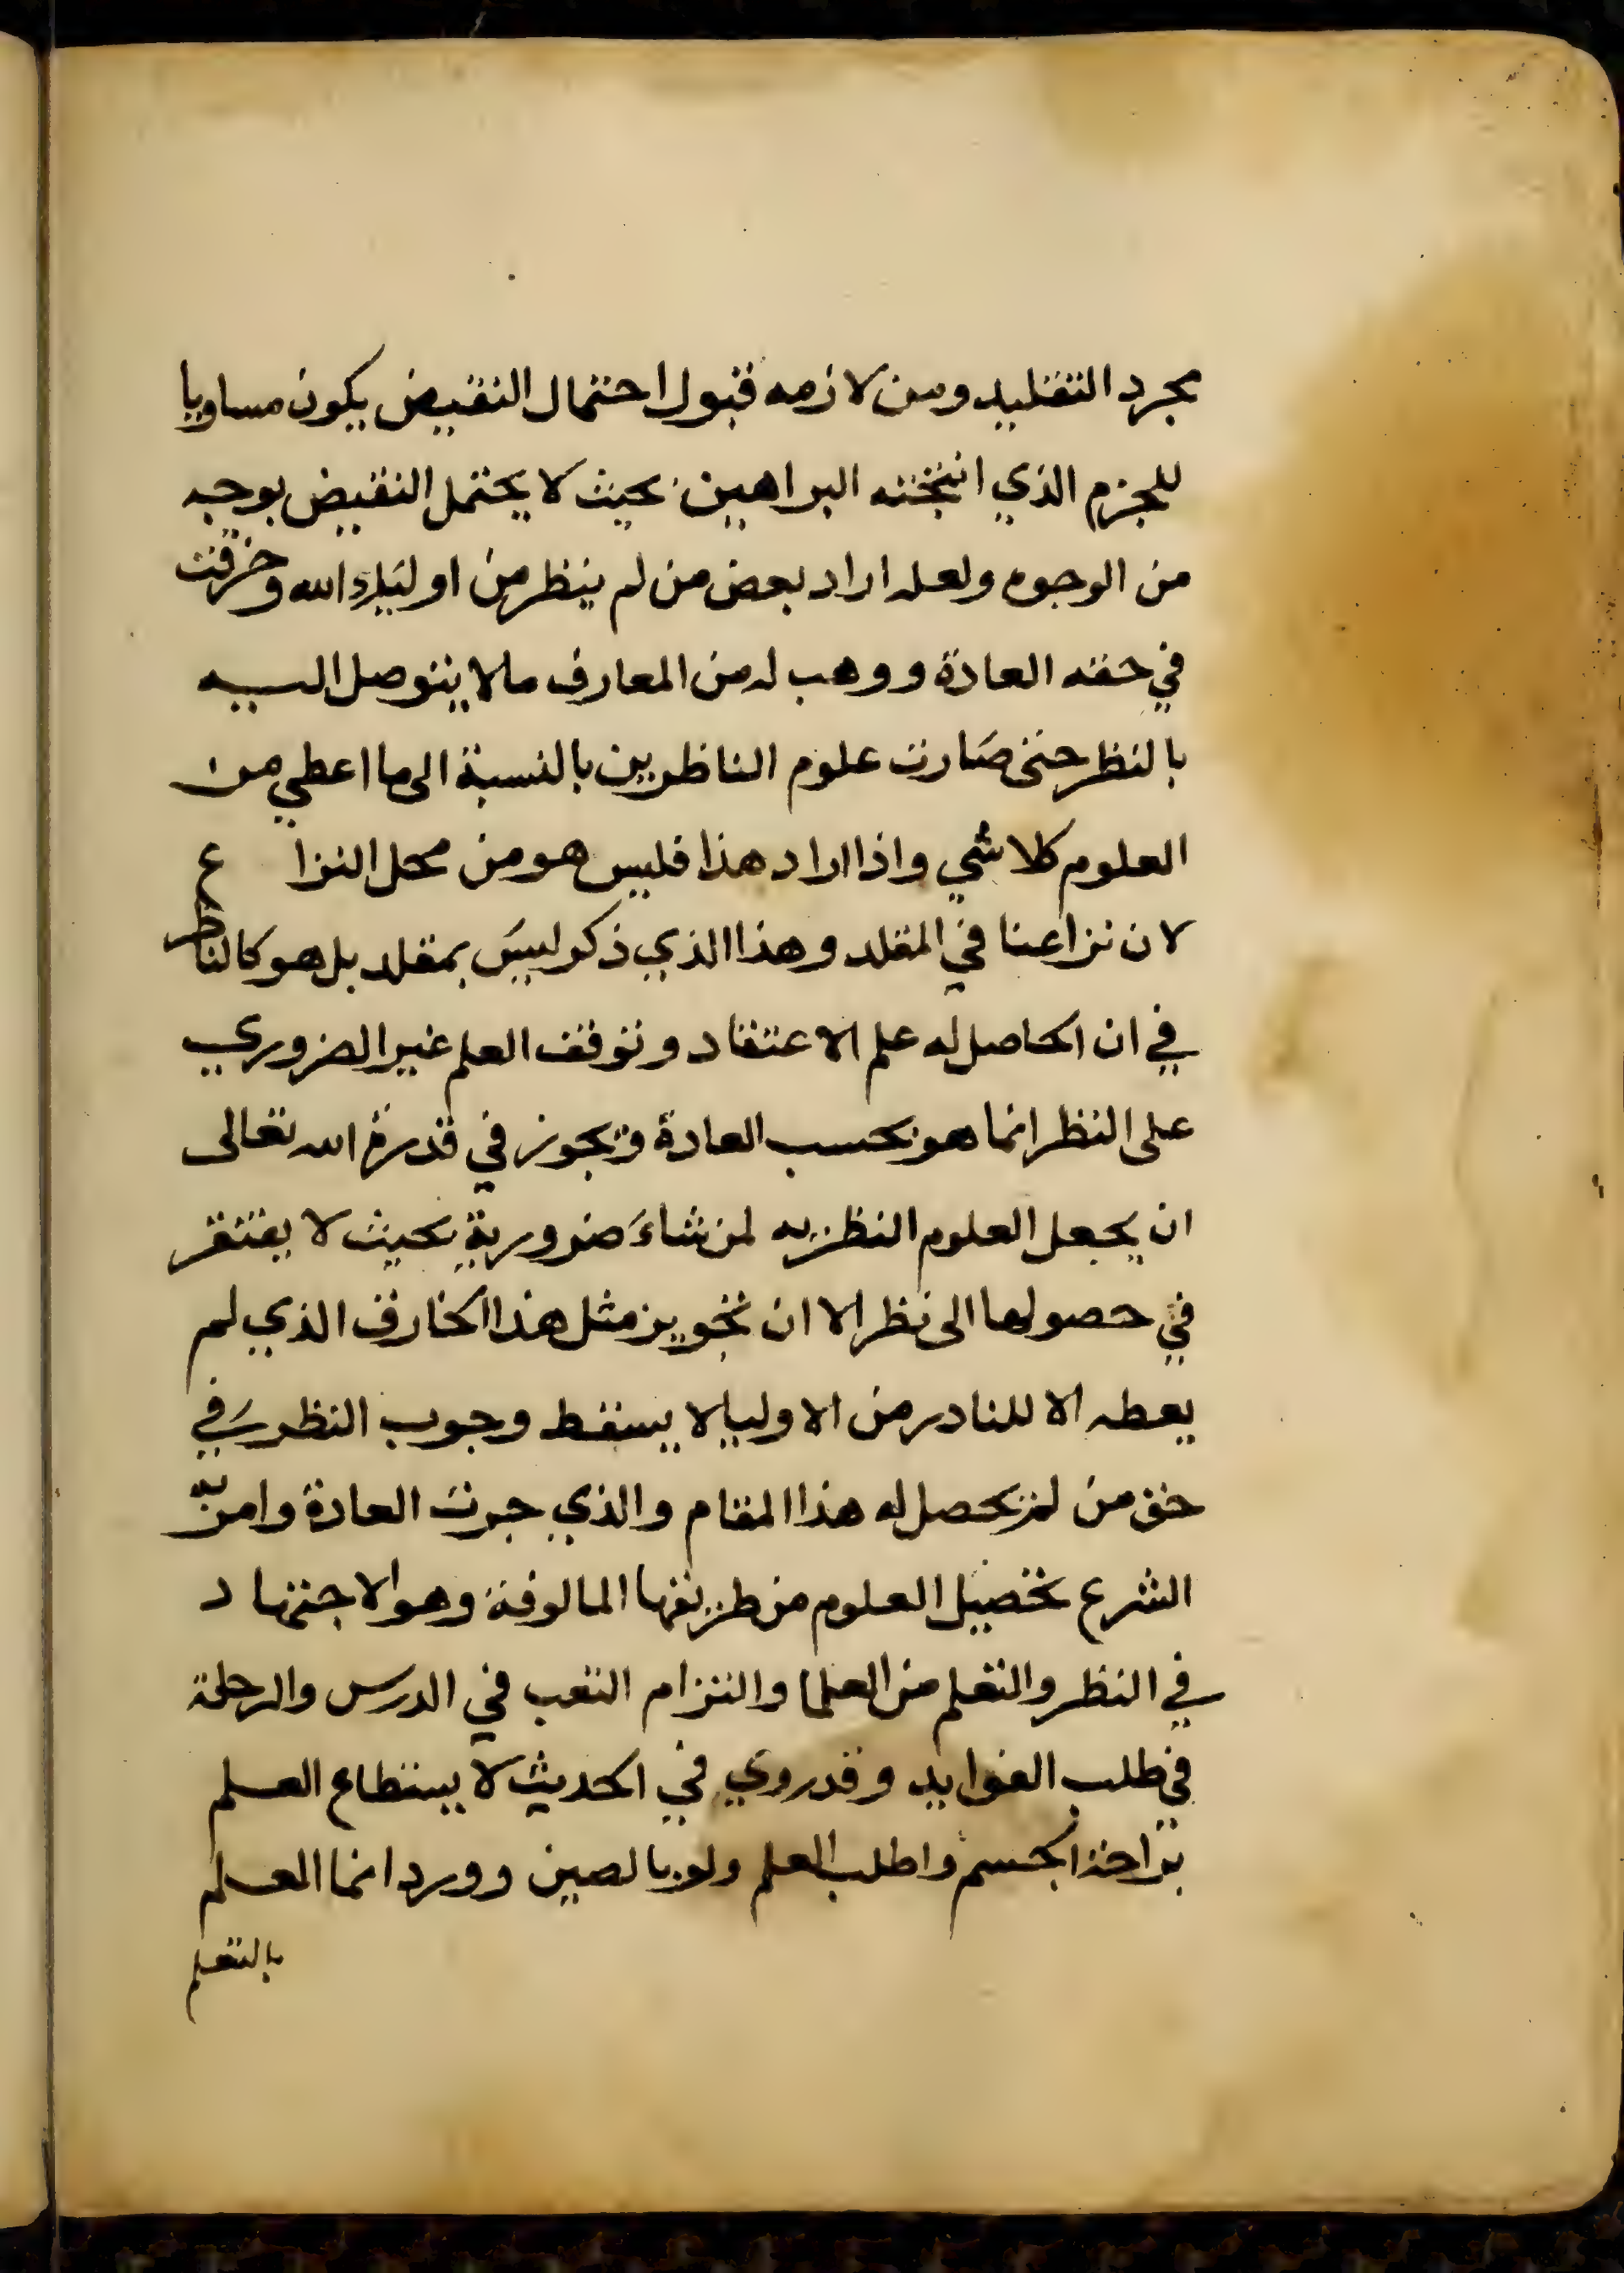 مجرد التقليد ومن لازمه قبول احتمال النقيض يكون مساويا
للجزم الذي انتجته البراهين بحيث لا يحتمل النقيض بوجه
من الوجوه ولعله اراد بعض من لم ينظر من اولياء الله وخرقت
في حقه العادة ووهب له من المعارف مالا يتوصل اليه
بالنظر حتى صارت علوم الناظرين بالنسبة الى ما اعطي من
العلوم كلا شي واذا اراد هذا فليس هو من محل النزاع
لان نزاعنا في المقلد وهذا الذي ذكر ليس بمقلد بل هو كالناظر
في ان الحاصل له علم الاعتقاد وتوقف العلم غير الضروري
على النظر انما هو بحسب العادة ويجوز في قدرة الله تعالى
ان يجعل العلوم النظريه لمن شاء ضرورية بحيث لا يفتقر
في حصولها الى نظر الا ان تجويز مثل هذا الخارق الذي لم
يعطه الا للنادر من الاوليا لا يسقط وجوب النظر في
حق من لم يحصل له هذا المقام والذي جرت العادة وامر به
الشرع تحصيل العلوم من طريقها المالوفة وهو الاجتهاد
في النظر والتعلم من العلما والتزام التعب في الدرس والرحلة
في طلب الفوايد وقد روي في الحديث لا يستطاع العلم
براحة الجسم واطلب العلم ولو بالصين وورد انما العلم
بالتعلم